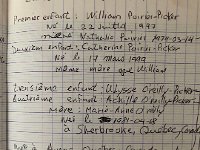 Premier enfant: William Poirier-Pickar
Né le 22 juillet 1997
mère Nathalie Poirier 1970-03-14
Deuxième enfant: Catherine Poirier-Pickar
Né le 17 Mars 1999
Même mère que William
Troisième enfant: Ulysse Oreilly-Pickar
Quatrième enfant: Achille Oreilly-Pickar
Mère: Marie-Anne Oreilly
Né le 1981-04-28
à Sherbrooke, Québec,